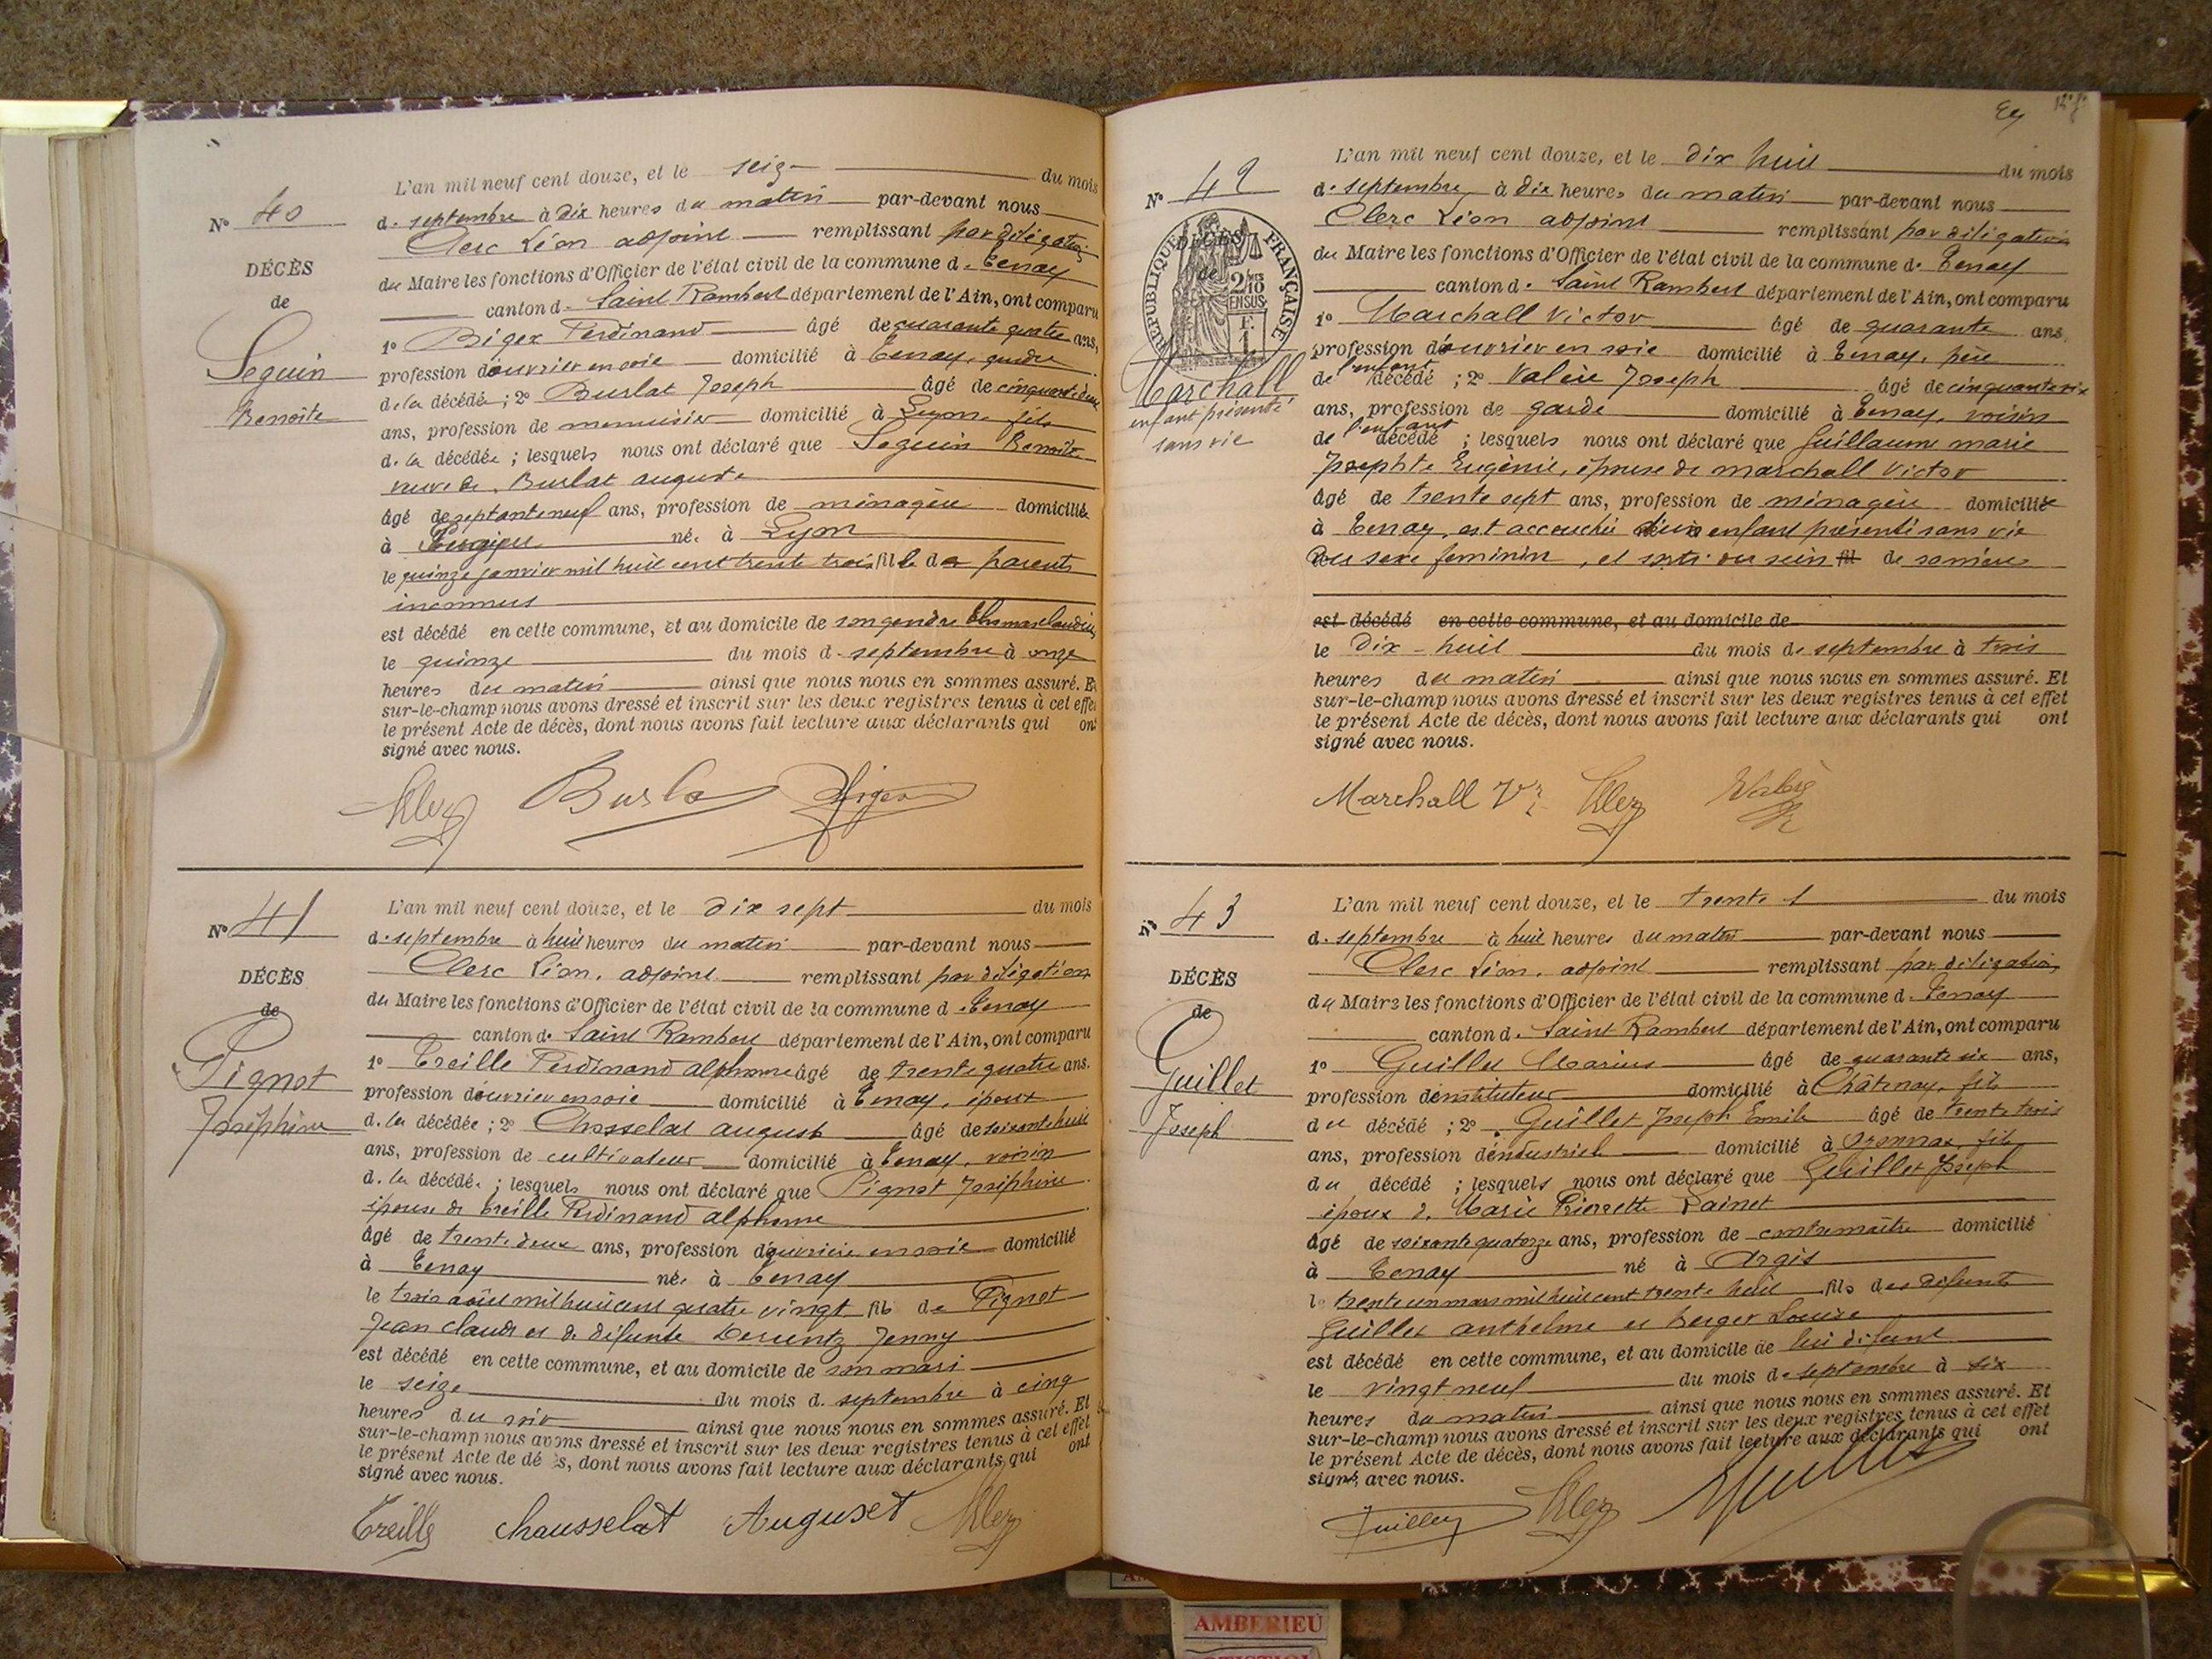 N° 40
DÉCÈS
de
Seguin
Benoîte
L'an mil neuf cent douze, et le seize du mois
de septembre à dix heures du matin par-devant nous
Clerc Léon adjoint remplissant par délégation
du Maire les fonctions d'Officier de l'état civil de la commune de Tenay
canton de Saint Rambert département de l'Ain, ont comparu
1° Biger Ferdinand âgé de quarante quatre ans,
profession d'ouvrier en soie domicilié à Tenay, gendre
de la décédée ; 2° Burlat Joseph âgé de cinquante deux
ans, profession de menuisier domicilié à Lyon, fils
de la décédée ; lesquels nous ont déclaré que Seguin Benoîte
veuve de Burlat auguste
âgé de septante neuf ans, profession de ménagère domiciliée
à née à Lyon
le quinze janvier mil huit cent trente trois fille de parents
inconnus
est décédé en cette commune, et au domicile de son gendre
le quinze du mois de septembre à onze
heures du matin ainsi que nous nous en sommes assuré. Et
sur-le-champ nous avons dressé et inscrit sur les deux registres tenus à cet effet
le présent Acte de décès, dont nous avons fait lecture aux déclarants qui ont
signé avec nous.
Clerc Burlat Biger
N° 41
DÉCÈS
de
Pignot
Joséphine
L'an mil neuf cent douze, et le dix sept du mois
de septembre à huit heures du matin par-devant nous
Clerc Léon, adjoint remplissant par délégation
du Maire les fonctions d'Officier de l'état civil de la commune de Tenay
canton de Saint Rambert département de l'Ain, ont comparu
1° Treille Ferdinand alphonse âgé de trente quatre ans.
profession d'ouvrier en soie domicilié à Tenay, époux
de la décédée ; 2° Chosselat auguste âgé de soixante huit
ans, profession de cultivateur domicilié à Tenay, voisin
de la décédée ; lesquels nous ont déclaré que Pignot Joséphine
épouse de Treille Ferdinand alphonse
âgé de trente deux ans, profession d'ouvrière en soie domicilié
à Tenay née à Tenay
le trois août mil huit cent quatre vingt fille de Pignot
Jean claude et de défunte Jenny
est décédé en cette commune, et au domicile de son mari
le seize du mois de septembre à cinq
heures du soir ainsi que nous nous en sommes assuré. Et
sur-le-champ nous avons dressé et inscrit sur les deux registres tenus à cet effet
le présent Acte de dé s, dont nous avons fait lecture aux déclarants qui ont
signé avec nous.
Treille chausselat Auguset Clerc
N° 42
RÉPUBLIQUE FRANÇAISE
2/10 EN SUS
F. 1
DÉCÈS
de
Marchall
enfant présenté
sans vie
L'an mil neuf cent douze, et le dix huit du mois
de septembre, à dix heures du matin par-devant nous
Clerc Léon adjoint remplissant par délégation
du Maire les fonctions d'Officier de l'état civil de la commune de Tenay
canton de Saint Rambert département de l'Ain, ont comparu
1° Marchall Victor âgé de quarante ans,
profession d'ouvrier en soie domicilié à Tenay, père
de l'enfant décédé ; 2° Valère Joseph âgé de cinquante six
ans, profession de garde domicilié à Tenay, voisin
de l'enfant décédé ; lesquels nous ont déclaré que Guillaume marie
Josephte Eugénie, épouse de marchall victor
âgé de trente sept ans, profession de ménagère domiciliée
à Tenay, est accouchée d'un enfant présenté sans vie
du sexe feminin, et sorti du sein fil de sa mère
est décédé en cette commune, et au domicile de
le Dix-huit du mois de septembre à trois
heures du matin ainsi que nous nous en sommes assuré. Et
sur-le-champ nous avons dressé et inscrit sur les deux registres tenus à cet effet
le présent Acte de décès, dont nous avons fait lecture aux déclarants qui ont
signé avec nous.
Marchall Vr Clerc
N° 43
DÉCÈS
de
Guillet
Joseph
L'an mil neuf cent douze, et le trente du mois
de septembre à huit heures du matin par-devant nous
Clerc Léon, adjoint remplissant par délégation
du Maire les fonctions d'Officier de l'état civil de la commune de Tenay
canton de Saint Rambert département de l'Ain, ont comparu
1° Guillet Marius âgé de quarante six ans,
profession d'instituteur domicilié à Châtenay, fils
du décédé ; 2° Guillet Joseph Emile âgé de trente trois
ans, profession d'industriel domicilié à oyonnax, fils
du décédé ; lesquels nous ont déclaré que Guillet Joseph
époux de Marie Pierrette Rainet
âgé de soixante quatorze ans, profession de contremaître domicilié
à Tenay né à Argis
le trente un mars mil huit cent trente huit fils des défunts
Guillet anthelme et Berger Louise
est décédé en cette commune, et au domicile de lui défunt
le vingt neuf du mois de septembre à six
heures du matin ainsi que nous nous en sommes assuré. Et
sur-le-champ nous avons dressé et inscrit sur les deux registres tenus à cet effet
le présent Acte de décès, dont nous avons fait lecture aux déclarants qui ont
signé avec nous.
Guillet Clerc Guillet
AMBERIEU